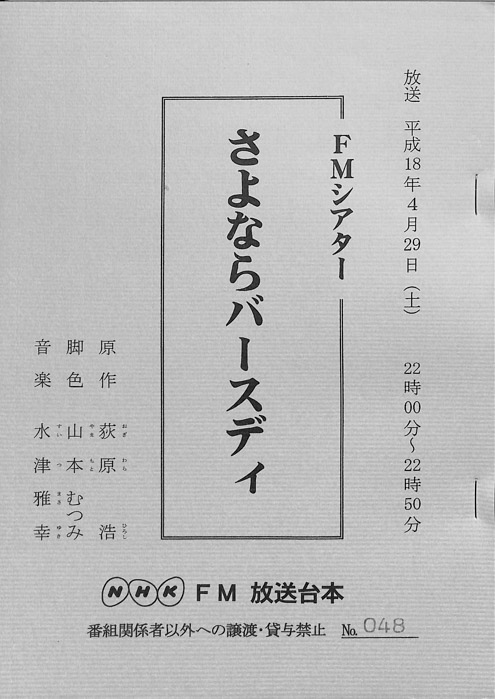 放送 平成18年4月29日（土） 22時00分～22時50分
FMシアター
さよならバースディ
原作 荻原浩
おぎ わら ひろし
脚色 山本むつみ
やま もと
音楽 水津雅幸
すい つ まさ ゆき
NHK FM 放送台本
番組関係者以外への譲渡・貸与禁止 No. 048